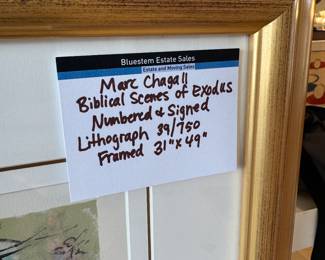 Bluestem Estate Sales
Estate and Moving Sales
Marc Chagall
Biblical Scenes of Exodus
Numbered & Signed
Lithograph 39/750
Framed 31" x 49"